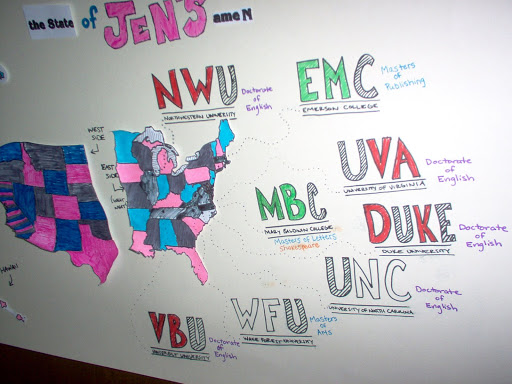 the State of JEN'S ame N
NWU
NORTHWESTERN UNIVERSITY
Doctorate
of
English
EMC
EMERSON COLLEGE
Masters
of
Publishing
WEST
SIDE
EAST
SIDE
(WHAT
WHAT)
UVA
UNIVERSITY of VIRGINIA
Doctorate of
English
MBC
MARY BALDWIN COLLEGE
Masters of Letters
Shakespeare
DUKE
DUKE UNIVERSITY
Doctorate
of English
HAWAII
UNC
UNIVERSITY OF NORTH CAROLINA
Doctorate of
English
VBU
VANDERBILT UNIVERSITY
Doctorate
of
English
WFU
WAKE FOREST UNIVERSITY
Masters
of
Arts